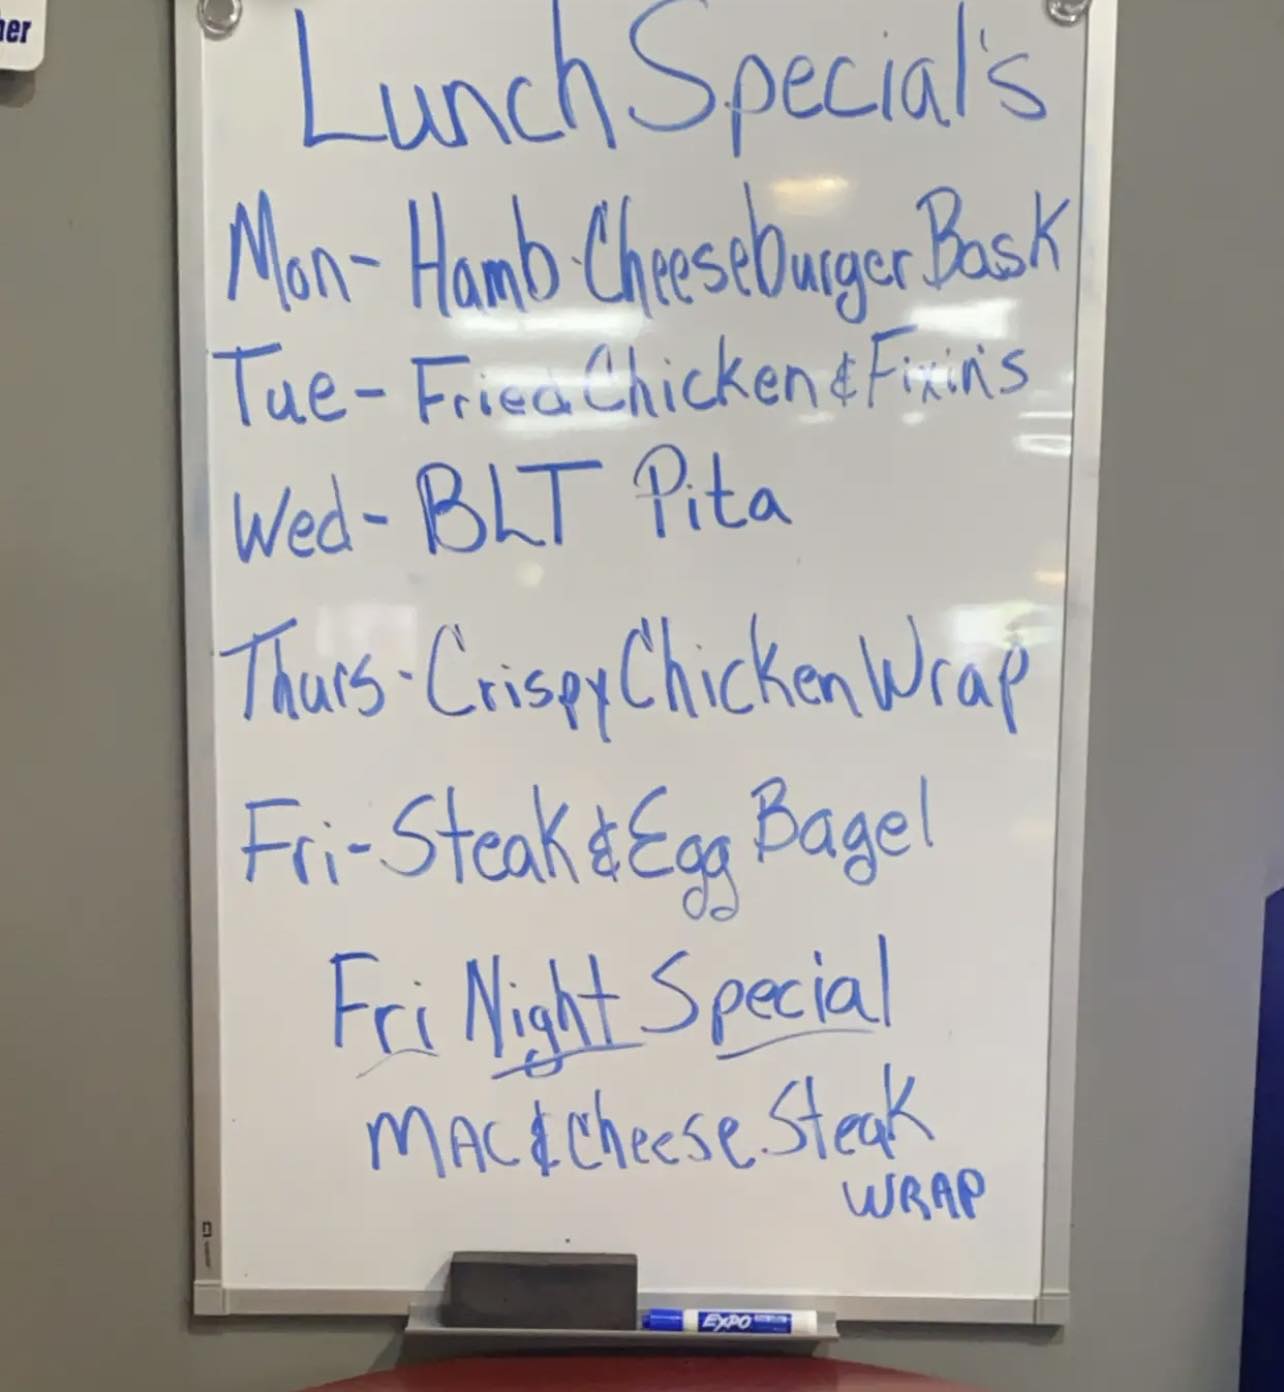 her
Lunch Special's
Mon- Hamb-Cheeseburger Bask
Tue- Fried Chicken & Fixin's
Wed- BLT Pita
Thurs-Crispy Chicken Wrap
Fri-Steak & Egg Bagel
Fri Night Special
MAC & Cheese.Steak
WRAP
EXPO